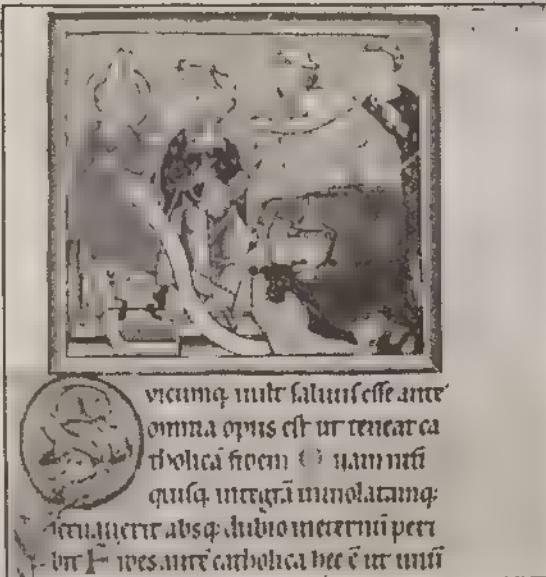 Quicumq; uult saluus esse ante
omnia opus est ut teneat ca
tholicā fidem Quam nisi
quisq; integrā inuiolatamq;
seruauerit absq; dubio ineternū peri
bit Fides autē catholica hec ē ut unū